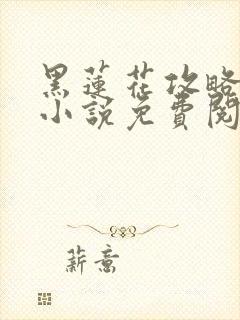 黑蓮花攻略
小說免費閱
薪意